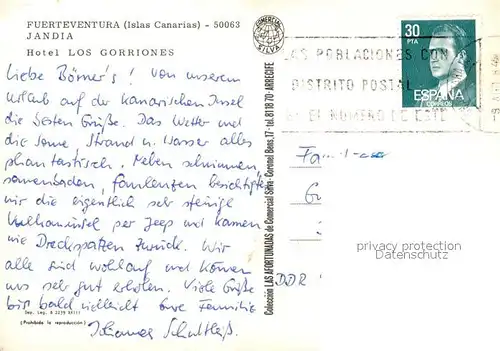 FUERTEVENTURA (Islas Canarias) - 50063
JANDIA
Hotel LOS GORRIONES
Liebe Börner's! Von unserem
Urlaub auf der Kanarischen Insel
die besten Grüße. Das Wetter und
die Sonne, Strand u. Wasser alles
phantastisch. Neben schwimmen
sonnenbaden, faulenzen besichtigten
wir die eigentlich sehr steinige
Vulkaninsel per Jeep und kamen
wie Dreckspatzen zurück. Wir
alle sind wohlauf und können
uns sehr gut erholen. Viele Grüße
bis bald vielleicht Eure Familie
Johannes Schultheiß.
Dep. Leg. B 2239 XXIII
(Prohibida la reproducción)
COMERCIAL
SILVA
Colección LAS AFORTUNADAS de Comercial Silva - Coronel Bens, 17 - tel. 81 18 70 - ARRECIFE
LAS POBLACIONES CON
DISTRITO POSTAL
EL NUMERO DE ESTE
30
PTA
ESPAÑA
CORREOS
Famil
DDR
privacy protection